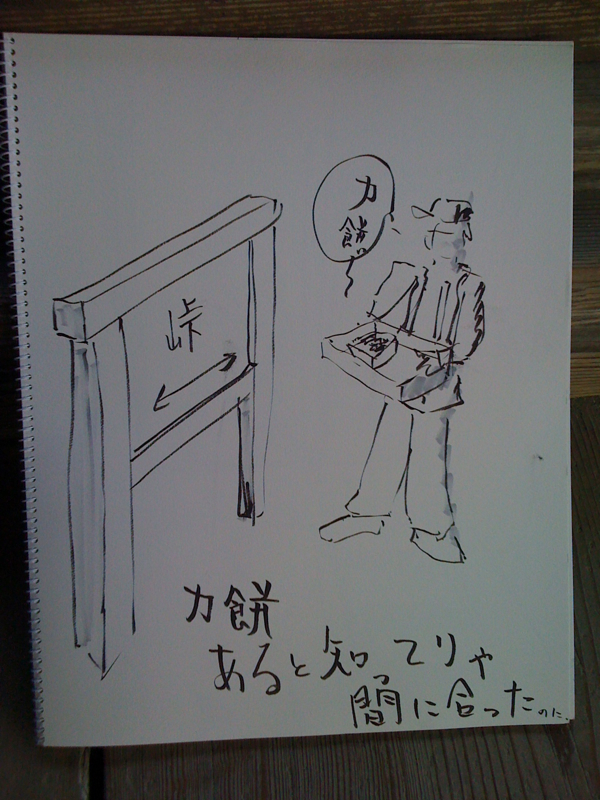 峠
力
餅
力餅
あると知ってりゃ
間に合ったのに、